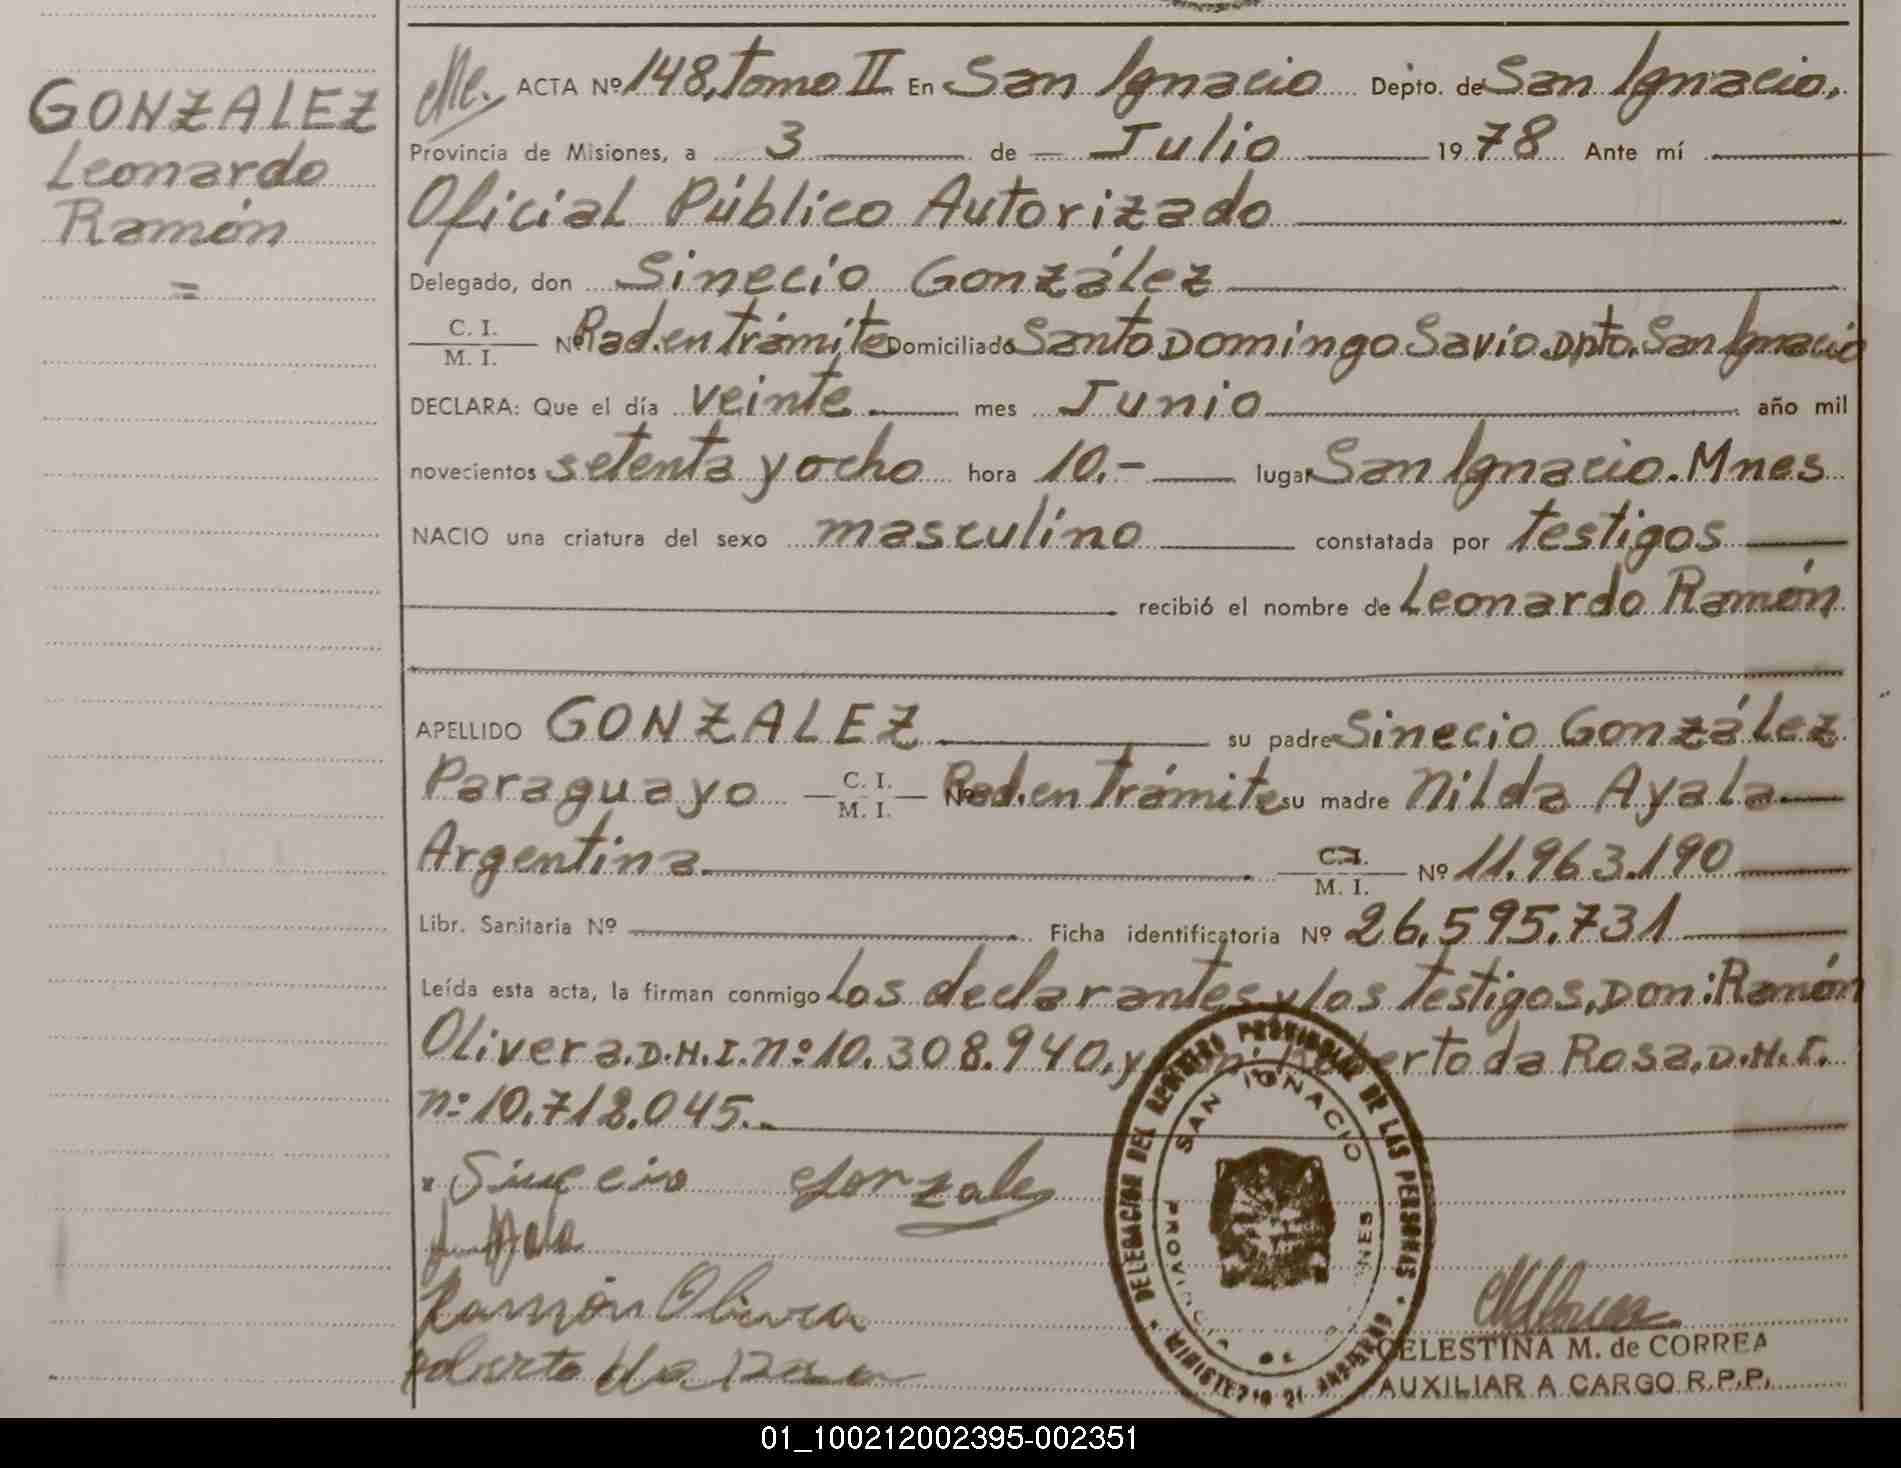 GONZALEZ
Leonardo
Ramón
=
ACTA Nº 148, Tomo II En San Ignacio Depto. de San Ignacio,
Provincia de Misiones, a 3 de Julio 1978 Ante mí
Oficial Público Autorizado
Delegado, don Sinecio González
C. I.
M. I. Nº Rad. en trámite Domiciliado Santo Domingo Savio Dpto. San Ignacio
DECLARA: Que el día veinte mes Junio año mil
novecientos setenta y ocho hora 10.- lugar San Ignacio. Mnes
NACIO una criatura del sexo masculino constatada por testigos
recibió el nombre de Leonardo Ramón
APELLIDO GONZALEZ su padre Sinecio González
Paraguayo C. I. M. I. Nº Rad. en trámite su madre Nilda Ayala
Argentina C. I. M. I. Nº 11.963.190
Libr. Sanitaria Nº Ficha identificatoria Nº 26.595.731
Leída esta acta, la firman conmigo los declarantes y los testigos, Don: Ramón
Olivera. D.N.I. nº 10.308.940, y Don: Roberto da Rosa, D.N.I.
nº 10.718.045.
Sinecio Gonzalez
Ramón Olivera
Roberto da Rosa
DELEGACION DEL REGISTRO PROVINCIAL DE LAS PERSONAS
SAN IGNACIO
PROVINCIA DE MISIONES
MINISTERIO DE GOBIERNO
CELESTINA M. de CORREA
AUXILIAR A CARGO R.P.P.
01_100212002395-002351